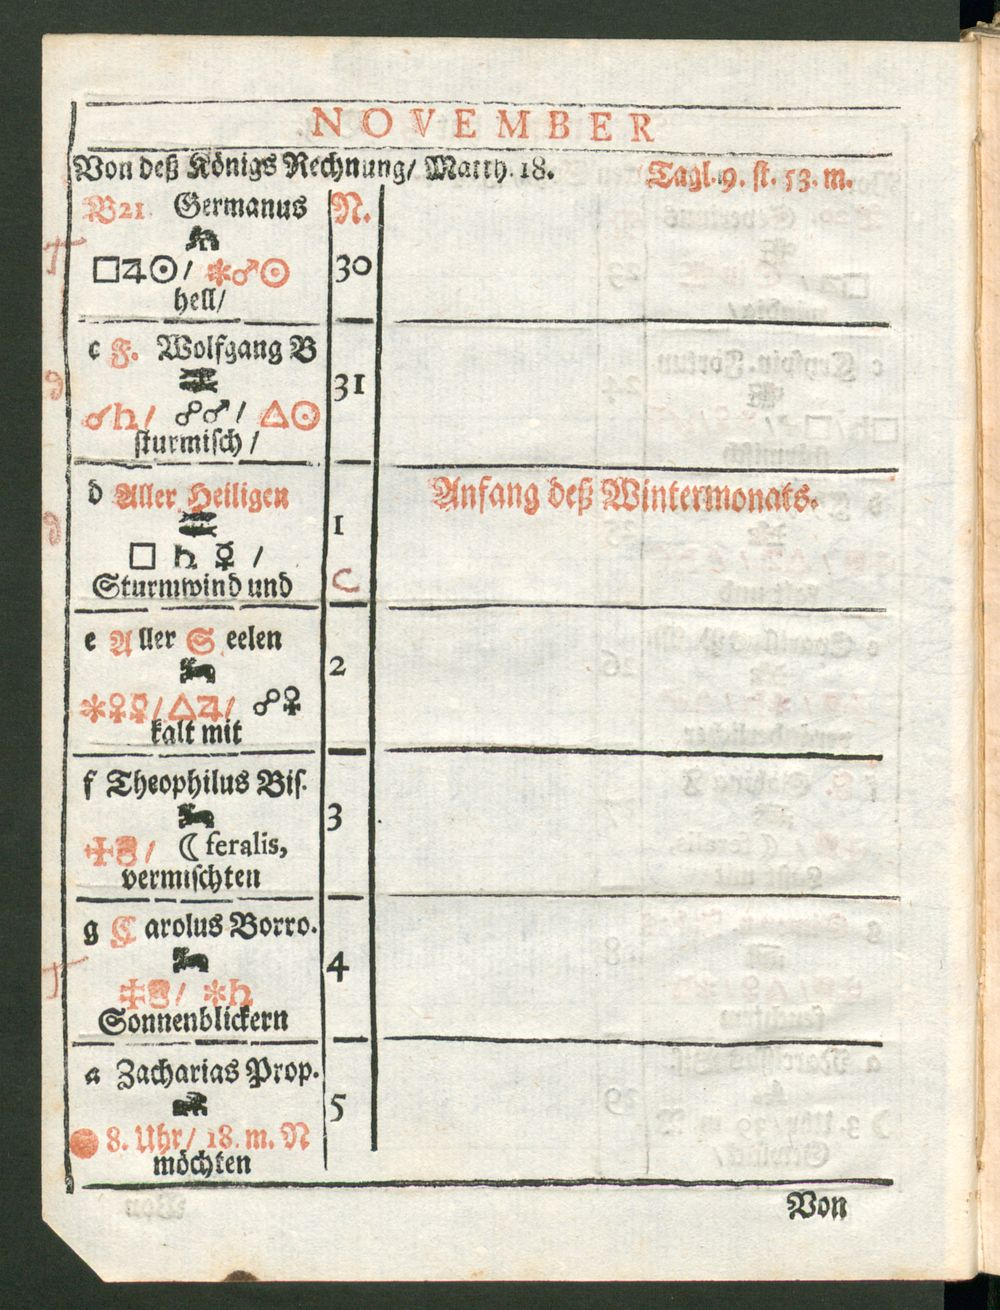 NOVEMBER
Von deß Königs Rechnung/ Matth. 18. Tagl. 9. st. 53. m.
B21. Germanus N.
□♃☉/ ✻♂☉ 30
hell/
c F. Wolfgang B
31
☌♄/ ☍♂/ △☉
sturmisch/
d Aller Heiligen Anfang deß Wintermonats.
1
□ ♄ ☿ /
Sturmwind und C
e Aller Seelen
2
✻♀☿/△♃/ ☍♀
kalt mit
f Theophilus Bis.
3
/ ☾ feralis,
vermischten
g Carolus Borro.
4
/ ✻♄
Sonnenblickern
a Zacharias Prop.
5
8. Uhr/ 18. m. N
möchten
Von